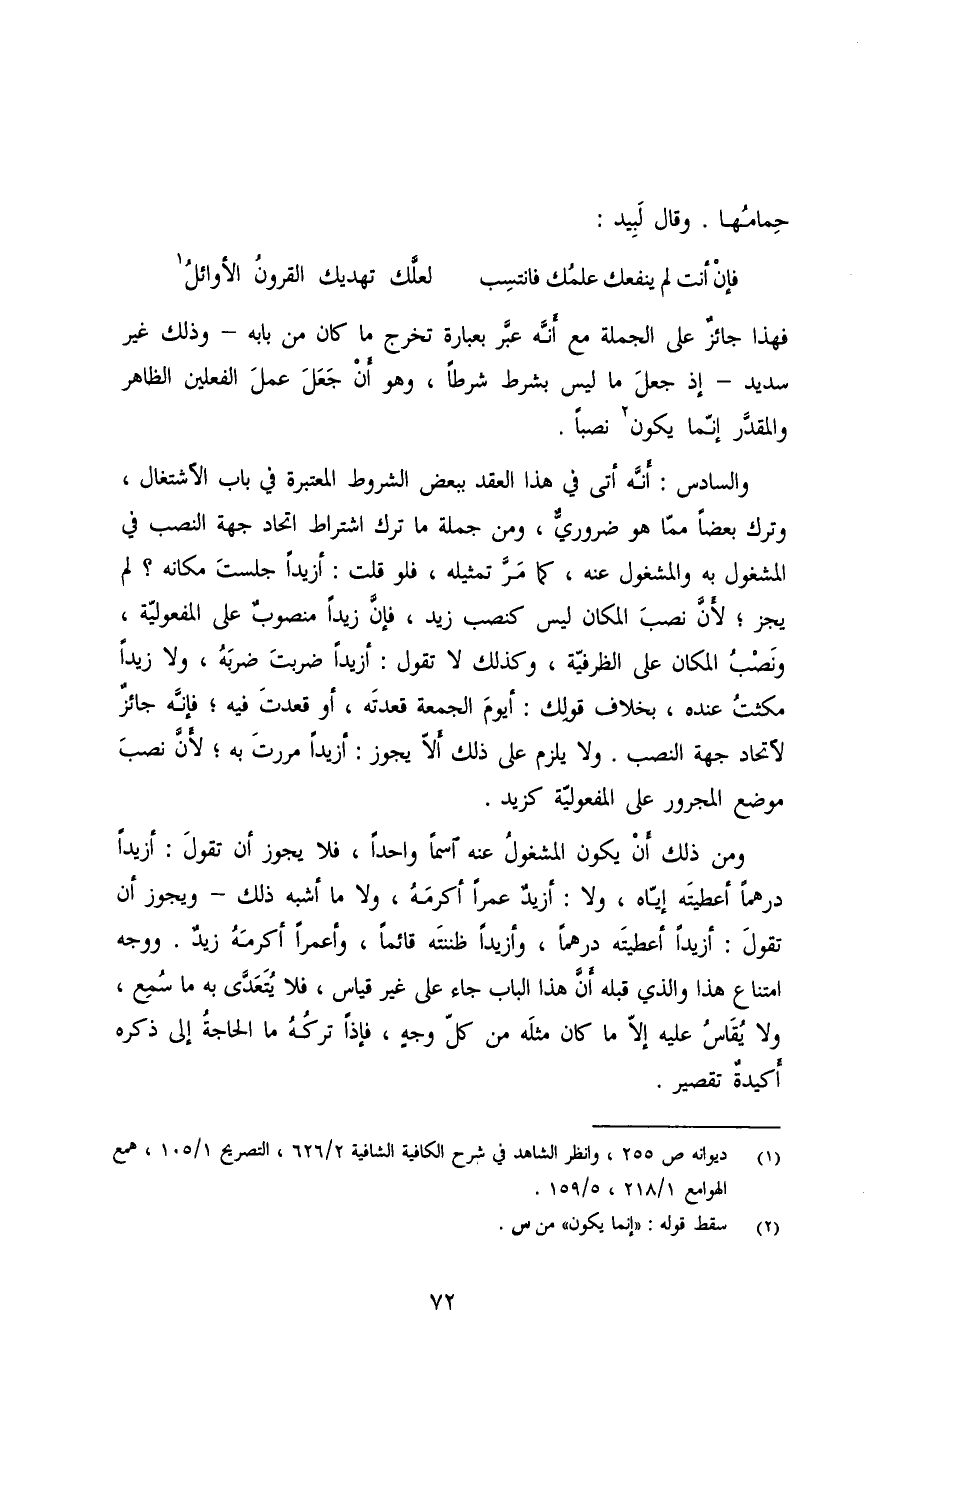 حِمامُها . وقال لَبِيد :
فإنْ أنت لم ينفعك علمُك فانتسِب لعلَّك تهديك القرونُ الأوائلُ١
فهذا جائزٌ على الجملة مع أَنَّه عبَّر بعبارة تخرج ما كان من بابه – وذلك غير
سديد – إذ جعلَ ما ليس بشرط شرطاً ، وهو أَنْ جَعَلَ عملَ الفعلين الظاهر
والمقدَّر إنّما يكون٢ نصباً .
والسادس : أَنَّه أتى في هذا العقد ببعض الشروط المعتبرة في باب الٱشتغال ،
وترك بعضاً ممّا هو ضروريٌّ ، ومن جملة ما ترك اشتراط اتحاد جهة النصب في
المشغول به والمشغول عنه ، كما مَرَّ تمثيله ، فلو قلت : أزيداً جلستَ مكانه ؟ لم
يجز ؛ لأَنَّ نصبَ المكان ليس كنصب زيد ، فإنَّ زيداً منصوبٌ على المفعوليّة ،
ونَصْبُ المكان على الظرفيّة ، وكذلك لا تقول : أزيداً ضربتَ ضربَهُ ، ولا زيداً
مكثتُ عنده ، بخلاف قولِك : أيومَ الجمعة قعدتَه ، أو قعدتَ فيه ؛ فإنَّه جائزٌ
لٱتحاد جهة النصب . ولا يلزم على ذلك أَلاّ يجوز : أزيداً مررتَ به ؛ لأَنَّ نصبَ
موضع المجرور على المفعوليّة كزيد .
ومن ذلك أَنْ يكون المشغولُ عنه ٱسماً واحداً ، فلا يجوز أن تقولَ : أزيداً
درهماً أعطيتَه إيّاه ، ولا : أزيدٌ عمراً أكرمَهُ ، ولا ما أشبه ذلك – ويجوز أن
تقولَ : أزيداً أعطيتَه درهماً ، وأزيداً ظننتَه قائماً ، وأعمراً أكرمَهُ زيدٌ . ووجه
امتناع هذا والذي قبله أَنَّ هذا الباب جاء على غير قياس ، فلا يُتَعَدَّى به ما سُمِع ،
ولا يُقَاسُ عليه إلاّ ما كان مثلَه من كلّ وجهٍ ، فإذاً تركُهُ ما الحاجةُ إلى ذكره
أَكيدةٌ تقصير .
(١) ديوانه ص ٢٥٥ ، وانظر الشاهد في شرح الكافية الشافية ٦٢٦/٢ ، التصريح ١٠٥/١ ، همع
الهوامع ٢١٨/١ ، ١٥٩/٥ .
(٢) سقط قوله : «إنما يكون» من س .
٧٢